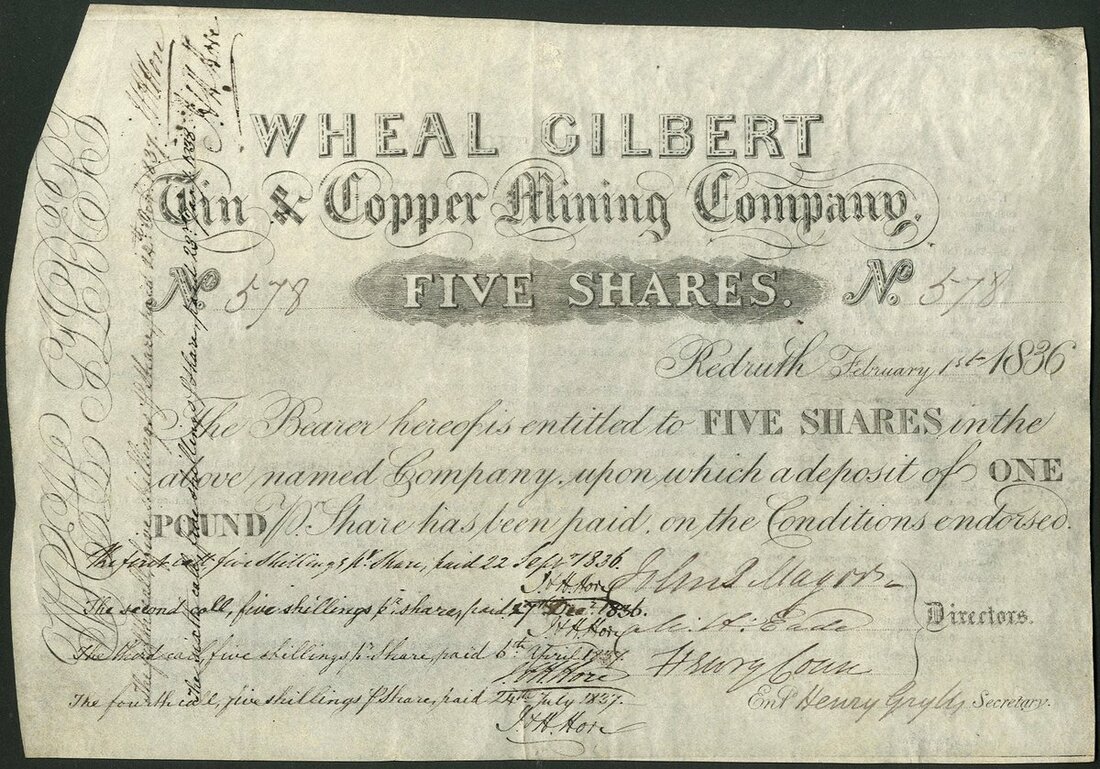 WHEAL GILBERT
Tin & Copper Mining Company.
No 578 FIVE SHARES. No. 578
Redruth February 1st 1836
The Bearer hereof is entitled to FIVE SHARES in the
above named Company, upon which a deposit of ONE
POUND pr. Share has been paid, on the Conditions endorsed.
The first call, five shillings pr. Share, paid 22 Septr 1836.
J H Hore
The second call, five shillings pr. share, paid Decr 1836.
J H Hore
The third call, five shillings pr. Share, paid 6th April 1837.
J H Hore
The fourth call, five shillings pr Share, paid 24th July 1837.
J H Hore
John Mayor
Eade
Henry
Directors.
Entd. Henry Grylls Secretary.
The fifth call, five shillings pr Share, paid 1837.
The sixth call, five shillings pr Share, paid 1838.
WHEAL GILBERT